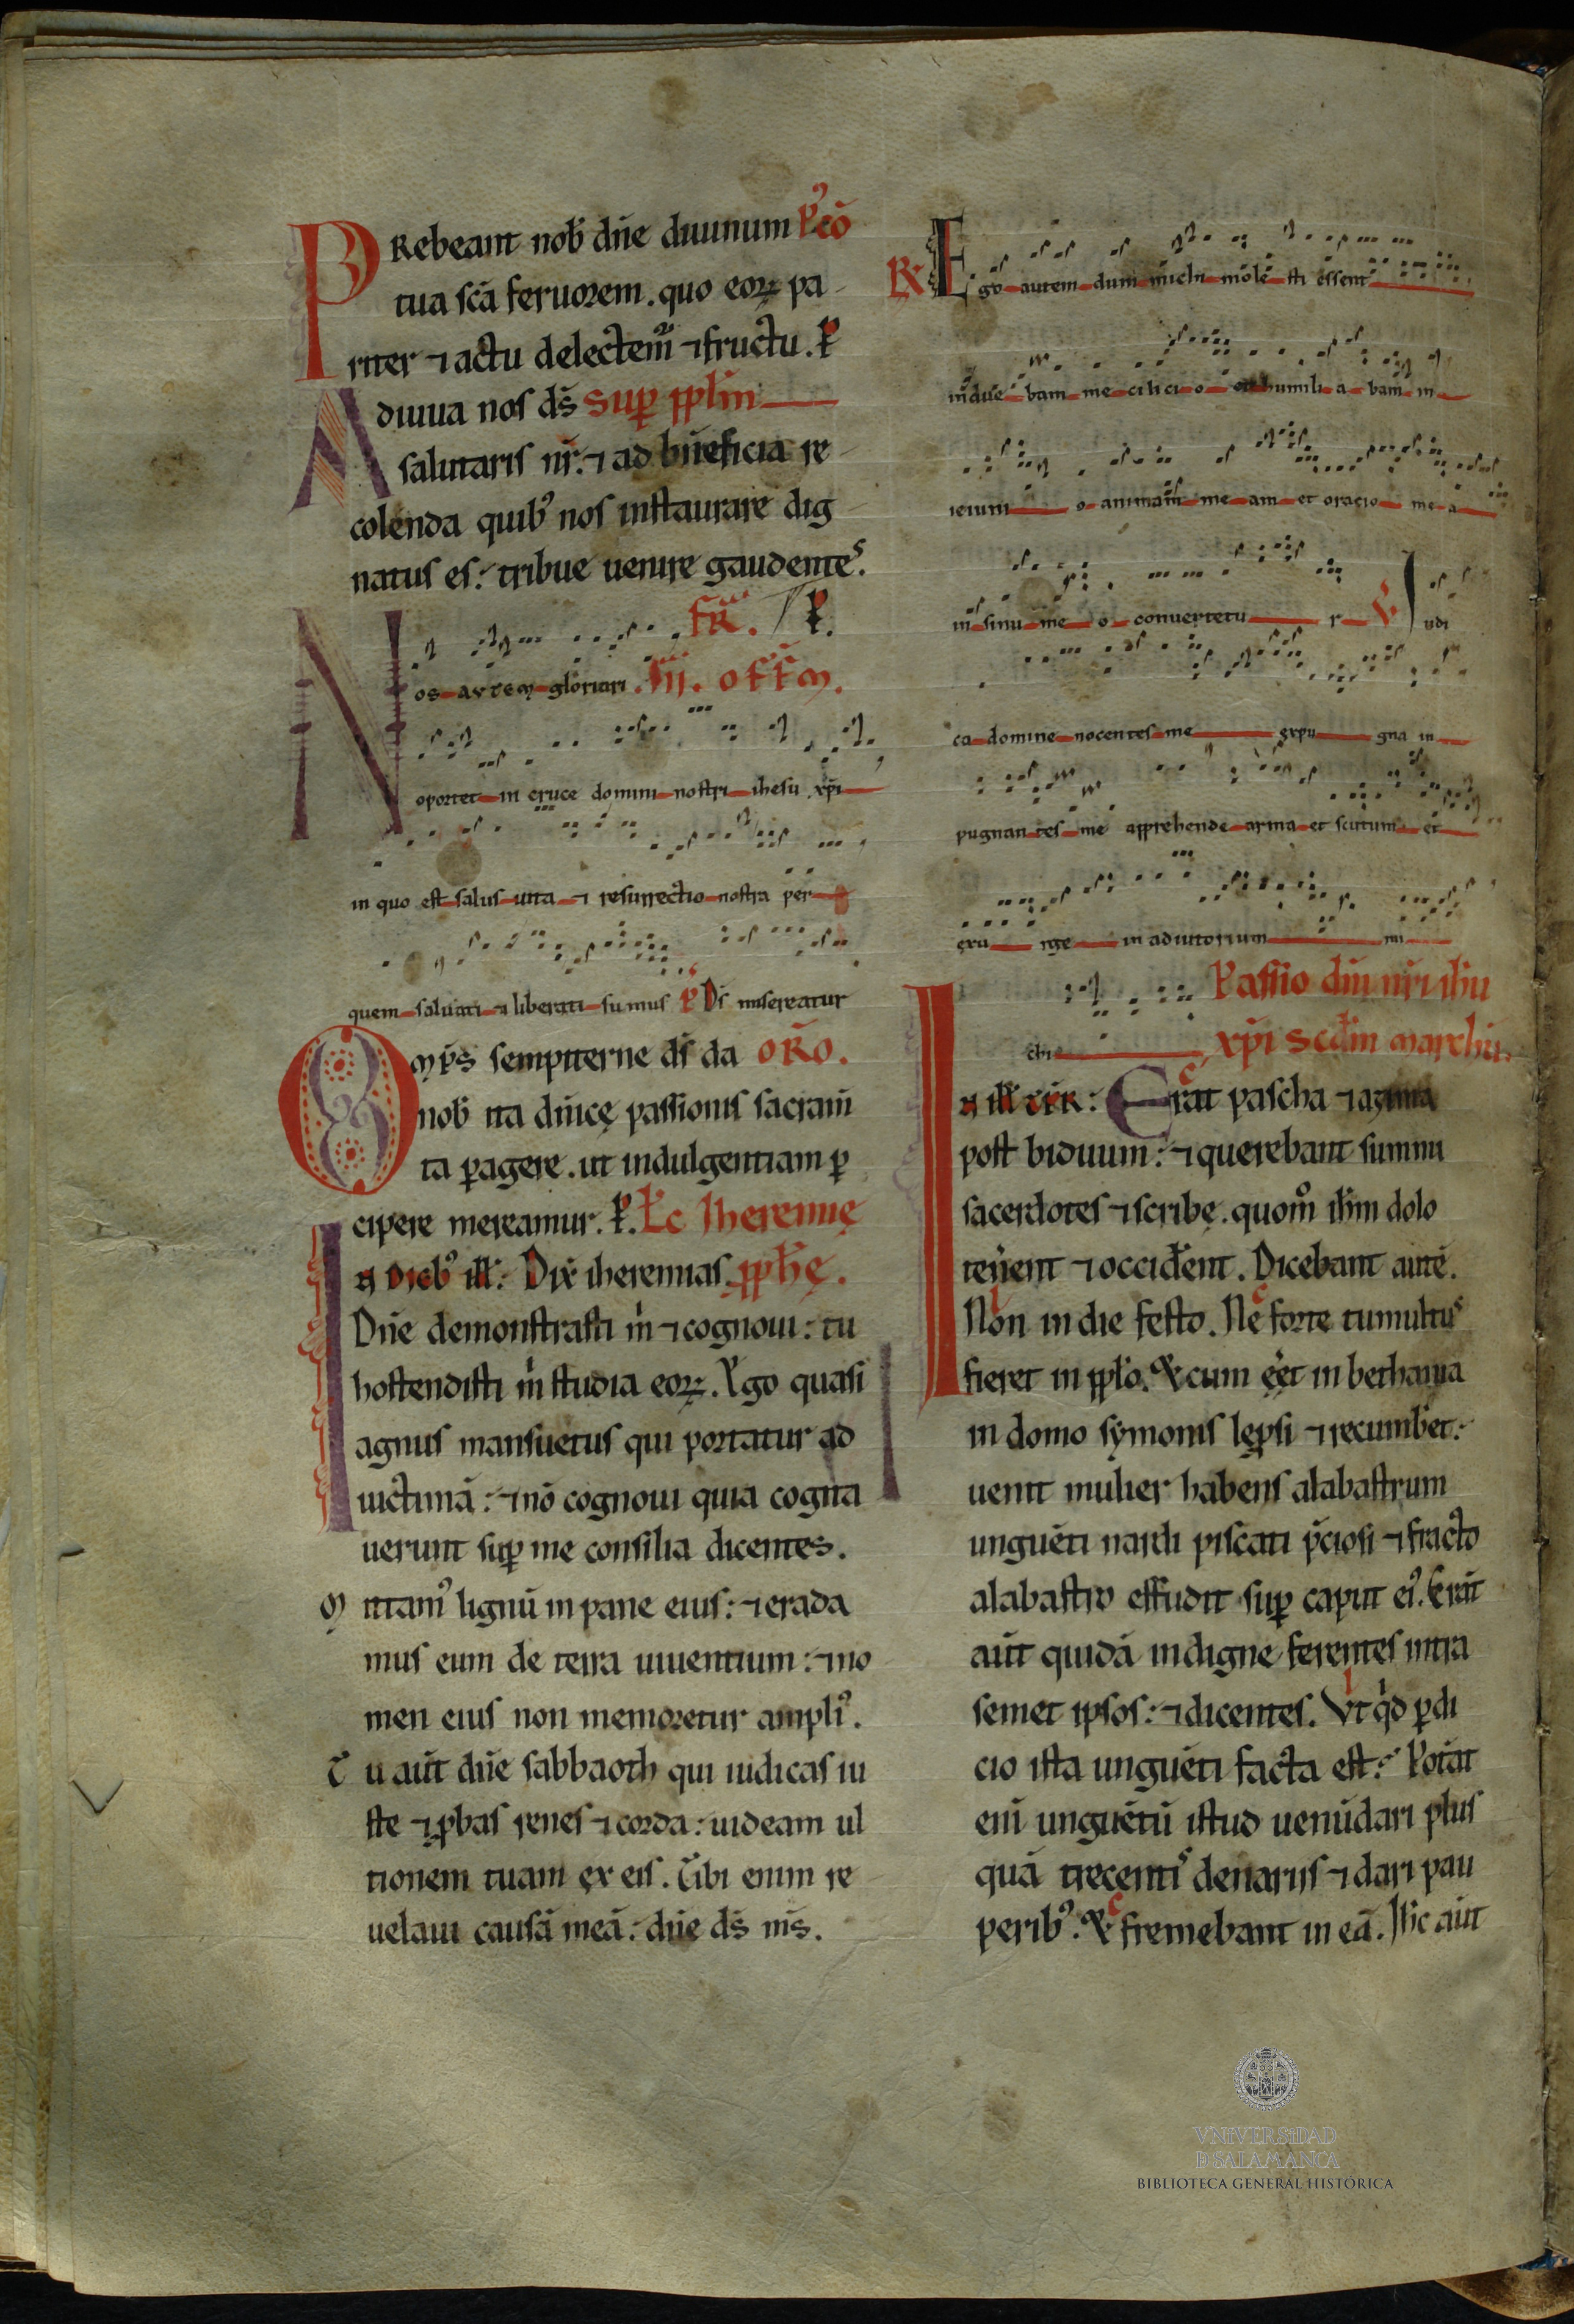 PRebeant nob̄ dn̄e diuinum p̾cō
tua sc̄a feruorem. quo eoꝝ pa
riter ⁊ actu delectem᷑ ⁊ fructu. P
Adiuua nos ds̄ Suꝑ pplm̄
salutaris nr̄. ⁊ ad bn̄eficia re
colenda quib᾿ nos instaurare dig
natus es: tribue uenire gaudentes.
fR̄. P.
Nos autem gloriari .III. off̄m.
oportet in cruce domini nostri ihesu xp̄i
in quo est salus uita ⁊ resurrectio nostra per
quem saluati ⁊ liberati sumus P Ds̄ misereatur
Omp̄s sempiterne ds̄ da ORO.
nob̄ ita dn̄icę passionis sacram̄
ta ꝑagere. ut indulgentiam ꝑ
cipere mereamur. P. Lc̄ Iheremię
In dieb᾿ ill̄: Dix̄ iheremias. pph̄ę.
Dn̄e demonstrasti m̄ ⁊ cognoui: tu
hostendisti m̄ studia eoꝝ. Ego quasi
agnus mansuetus qui portatur ad
uictimā: ⁊ nō cognoui quia cogita
uerunt suꝑ me consilia dicentes.
Mittam᾿ lignū in pane eius: ⁊ erada
mus eum de terra uiuentium: ⁊ no
men eius non memoretur ampli᾿.
Tu aut̄ dn̄e sabbaoth qui iudicas iu
ste ⁊ ꝓbas renes ⁊ corda: uideam ul
tionem tuam ęx eis. Tibi enim re
uelaui causā meā: dn̄e ds̄ ms̄.
R Ego autem dum michi mole sti essent
indue bam me cilicio humili a bam in
ieiuni o animam me am et oracio me a
in sinu me o conuertetu r V Iudi
ca domine nocentes me expu gna in
pugnan tes me apprehende arma et scutum et
exu rge in adiutorium mi
chi Passio dn̄i nr̄i ih̄u
xp̄i scd̄m marchū.
In ill̄ t̄p̄r: Erat pascha ⁊ azima
post biduum: ⁊ querebant summi
sacerdotes ⁊ scribę. quom̊ ih̄m dolo
tenent ⁊ occident. Dicebant autē.
Non in die festo. Ne forte tumultus
fieret in ppl̄o. Et cum eēt in bethania
in domo symonis lęꝑsi ⁊ recumbet:
uenit mulier habens alabastrum
unguēti nardi piscati p̄ciosi ⁊ fracto
alabastro effudit suꝑ caput ei᾿. Erāt
aut̄ quidā indigne ferentes intra
semet ipsos: ⁊ dicentes. Ut qd̄ ꝑdi
cio ista unguēti facta est: Potāt
eni unguētū istud uenūdari plus
quā trecentis denariis ⁊ dari pau
perib᾿. Et fremebant in eā. Ih̄c aut̄
VNIVERSIDAD
D SALAMANCA
BIBLIOTECA GENERAL HISTÓRICA